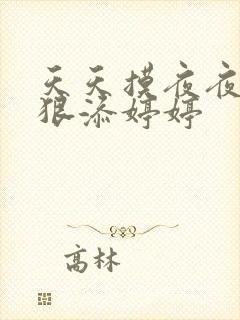 天天摸夜夜
狠添婷婷
高林